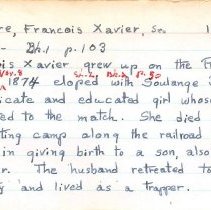 re, Francois Xavier, Sr. 1
- Bk.1 p.103
ois Xavier grew up on the
Nov. 8 Sr.-2, Bk.2 p.80
1874 eloped with Soulange
icate and educated girl whose
ed to the match. She died
ting camp along the railroad
in giving birth to a son, also
r. The husband retreated to
y and lived as a trapper.